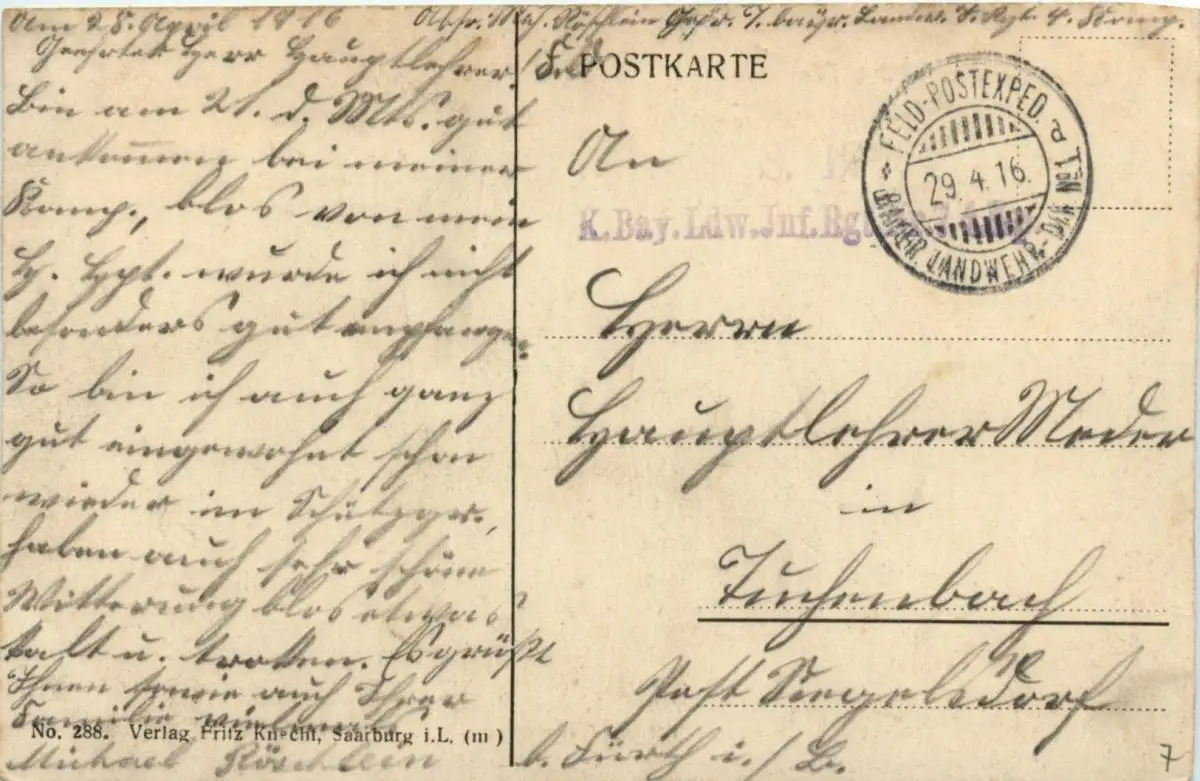 Am 28. April 1916
Abs. Mich. Röschlein Gefr. 7. bayr. Landw. I. Rgt. 4. Komp.
Geehrter Herr Hauptlehrer!
Bin am 21. d. Mts. gut
ankommen bei meiner
Komp., blos von mein
H. Hptl. wurde ich nicht
besonders gut empfangen.
So bin ich auch ganz
gut eingewohnt schon
wieder im Schützgr.,
haben auch sehr schöne
Witterung blos etwas
kalt u. troken. Es grüßt
Ihnen sowie auch Ihrer
Familie vielmals
Michael Röschlein
No. 288. Verlag Fritz Knecht, Saarburg i.L. (m)
Feld POSTKARTE
FELD-POSTEXPED. d
29. 4. 16.
BAYER. LANDWEHR-DIV. No. 1
An
K. Bay. Ldw. Inf. Rgt.
Herrn
Hauptlehrer Meder
in
Tuchenbach
Post Siegelsdorf
b. Fürth i./B.
7